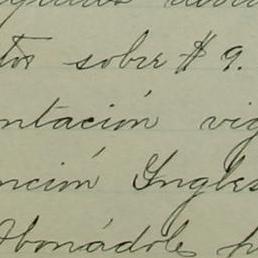 tos sobre $ 9.
ntación vig
nción Ingles
Abonádole p